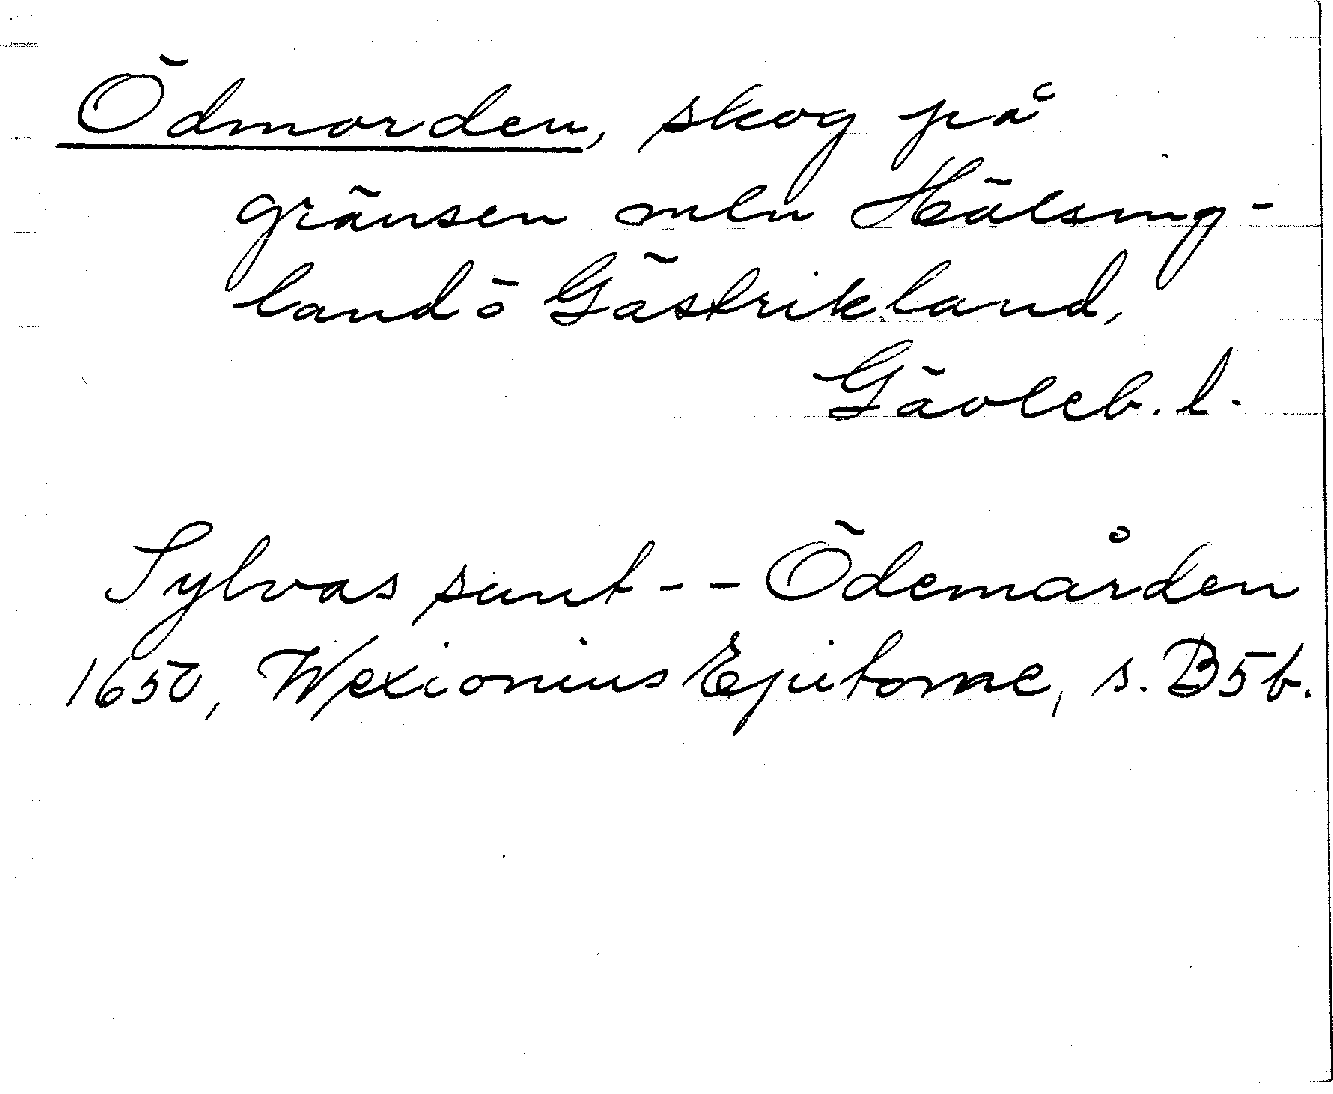 Ödmorden, skog på
gränsen mln Hälsing-
land o Gästrikland,
Gävleb. l.
Sylvas sunt -- Ödemården
1650, Wexionius Epitome, s. B5b.